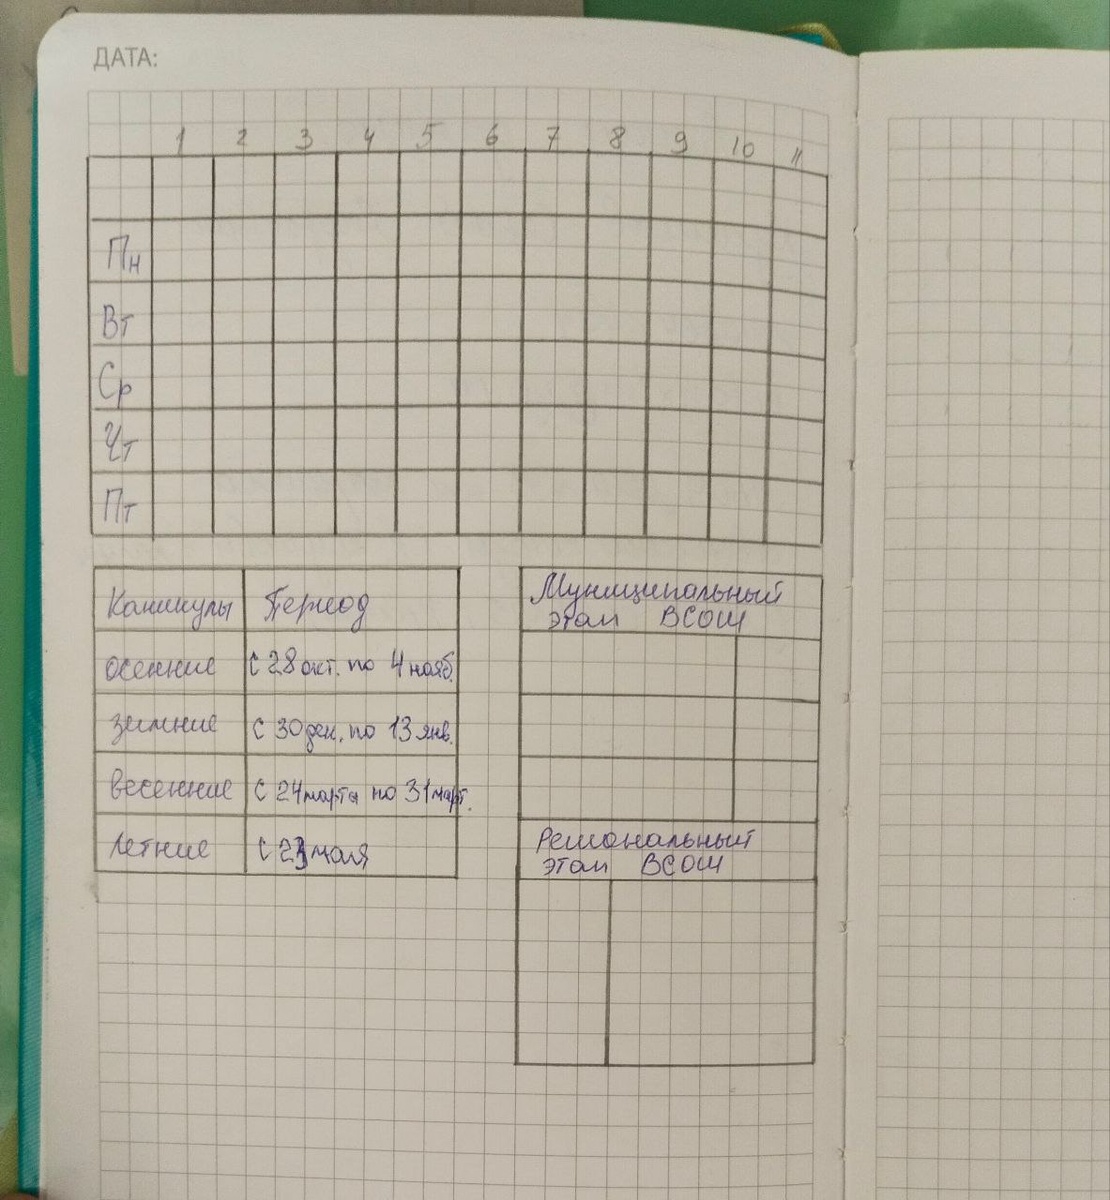 ДАТА:
1 2 3 4 5 6 7 8 9 10 11
Пн
Вт
Ср
Чт
Пт
Каникулы Период
осенние с 28 окт. по 4 нояб.
зимние с 30 дек. по 13 янв.
весенние с 24 марта по 31 март.
летние с 23 мая
Муниципальный
этап ВСОШ
Региональный
этап ВСОШ